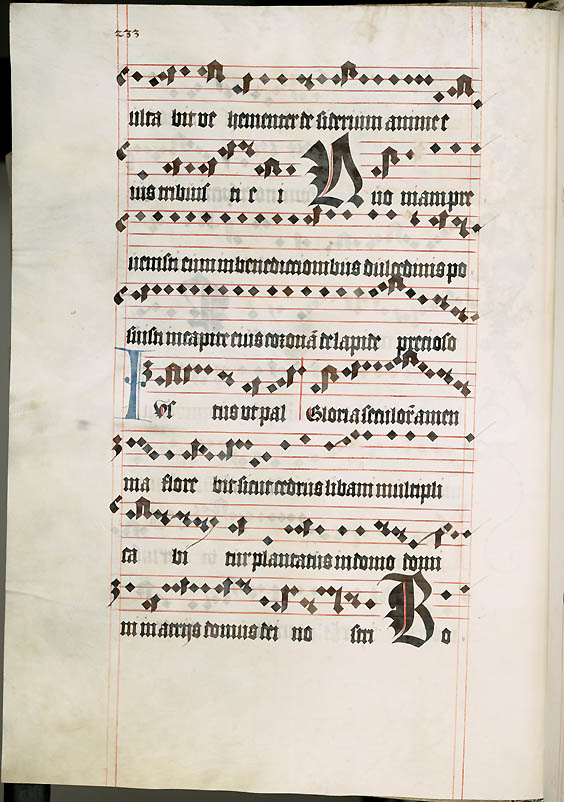 233
ulta bit ve hementer desiderium anime e
ius tribuisti e i Quo niam pre
uenisti eum in benedictionibus dulcedinis po
suisti in capite eius coronā de lapide precioso
Iustus ut pal Gloria seculoꝝ amen
ma flore bit sicut cedrus libani multipli
ca bi tur plantatus in domo domi
ni in atrijs domus dei no stri Bo